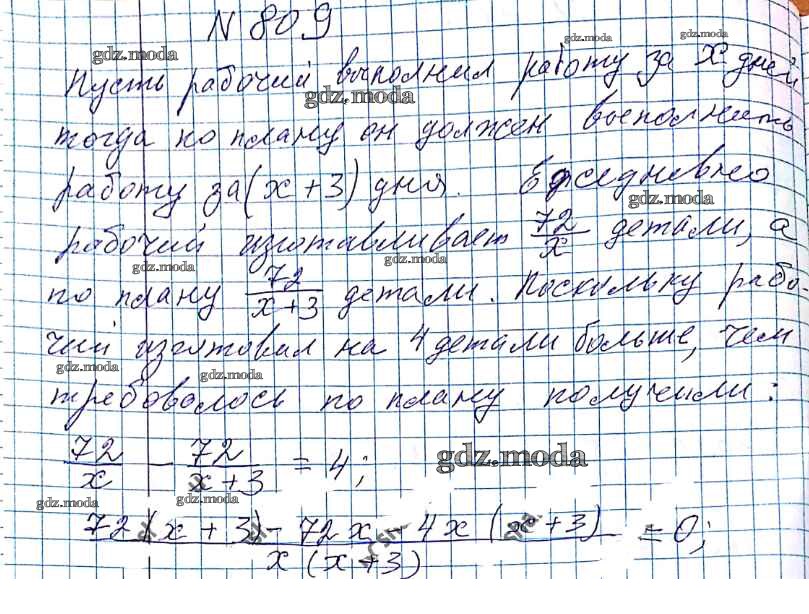 N 809
Пусть рабочий выполнил работу за x дней
тогда по плану он должен выполнить
работу за (x+3) дня. Ежедневно
рабочий изготавливает 72/x детали, а
по плану 72/(x+3) детали. Поскольку рабо-
чий изготовил на 4 детали больше, чем
требовалось по плану получили:
72/x - 72/(x+3) = 4;
(72(x+3) - 72x - 4x(x+3))/(x(x+3)) = 0;
gdz.moda
gdz.moda
gdz.moda
gdz.moda
gdz.moda
gdz.moda
gdz.moda
gdz.moda
gdz.moda
gdz.moda
gdz.moda
gdz.moda